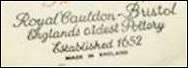 Royal Cauldon-Bristol
Englands oldest Pottery
Established 1652
MADE IN ENGLAND